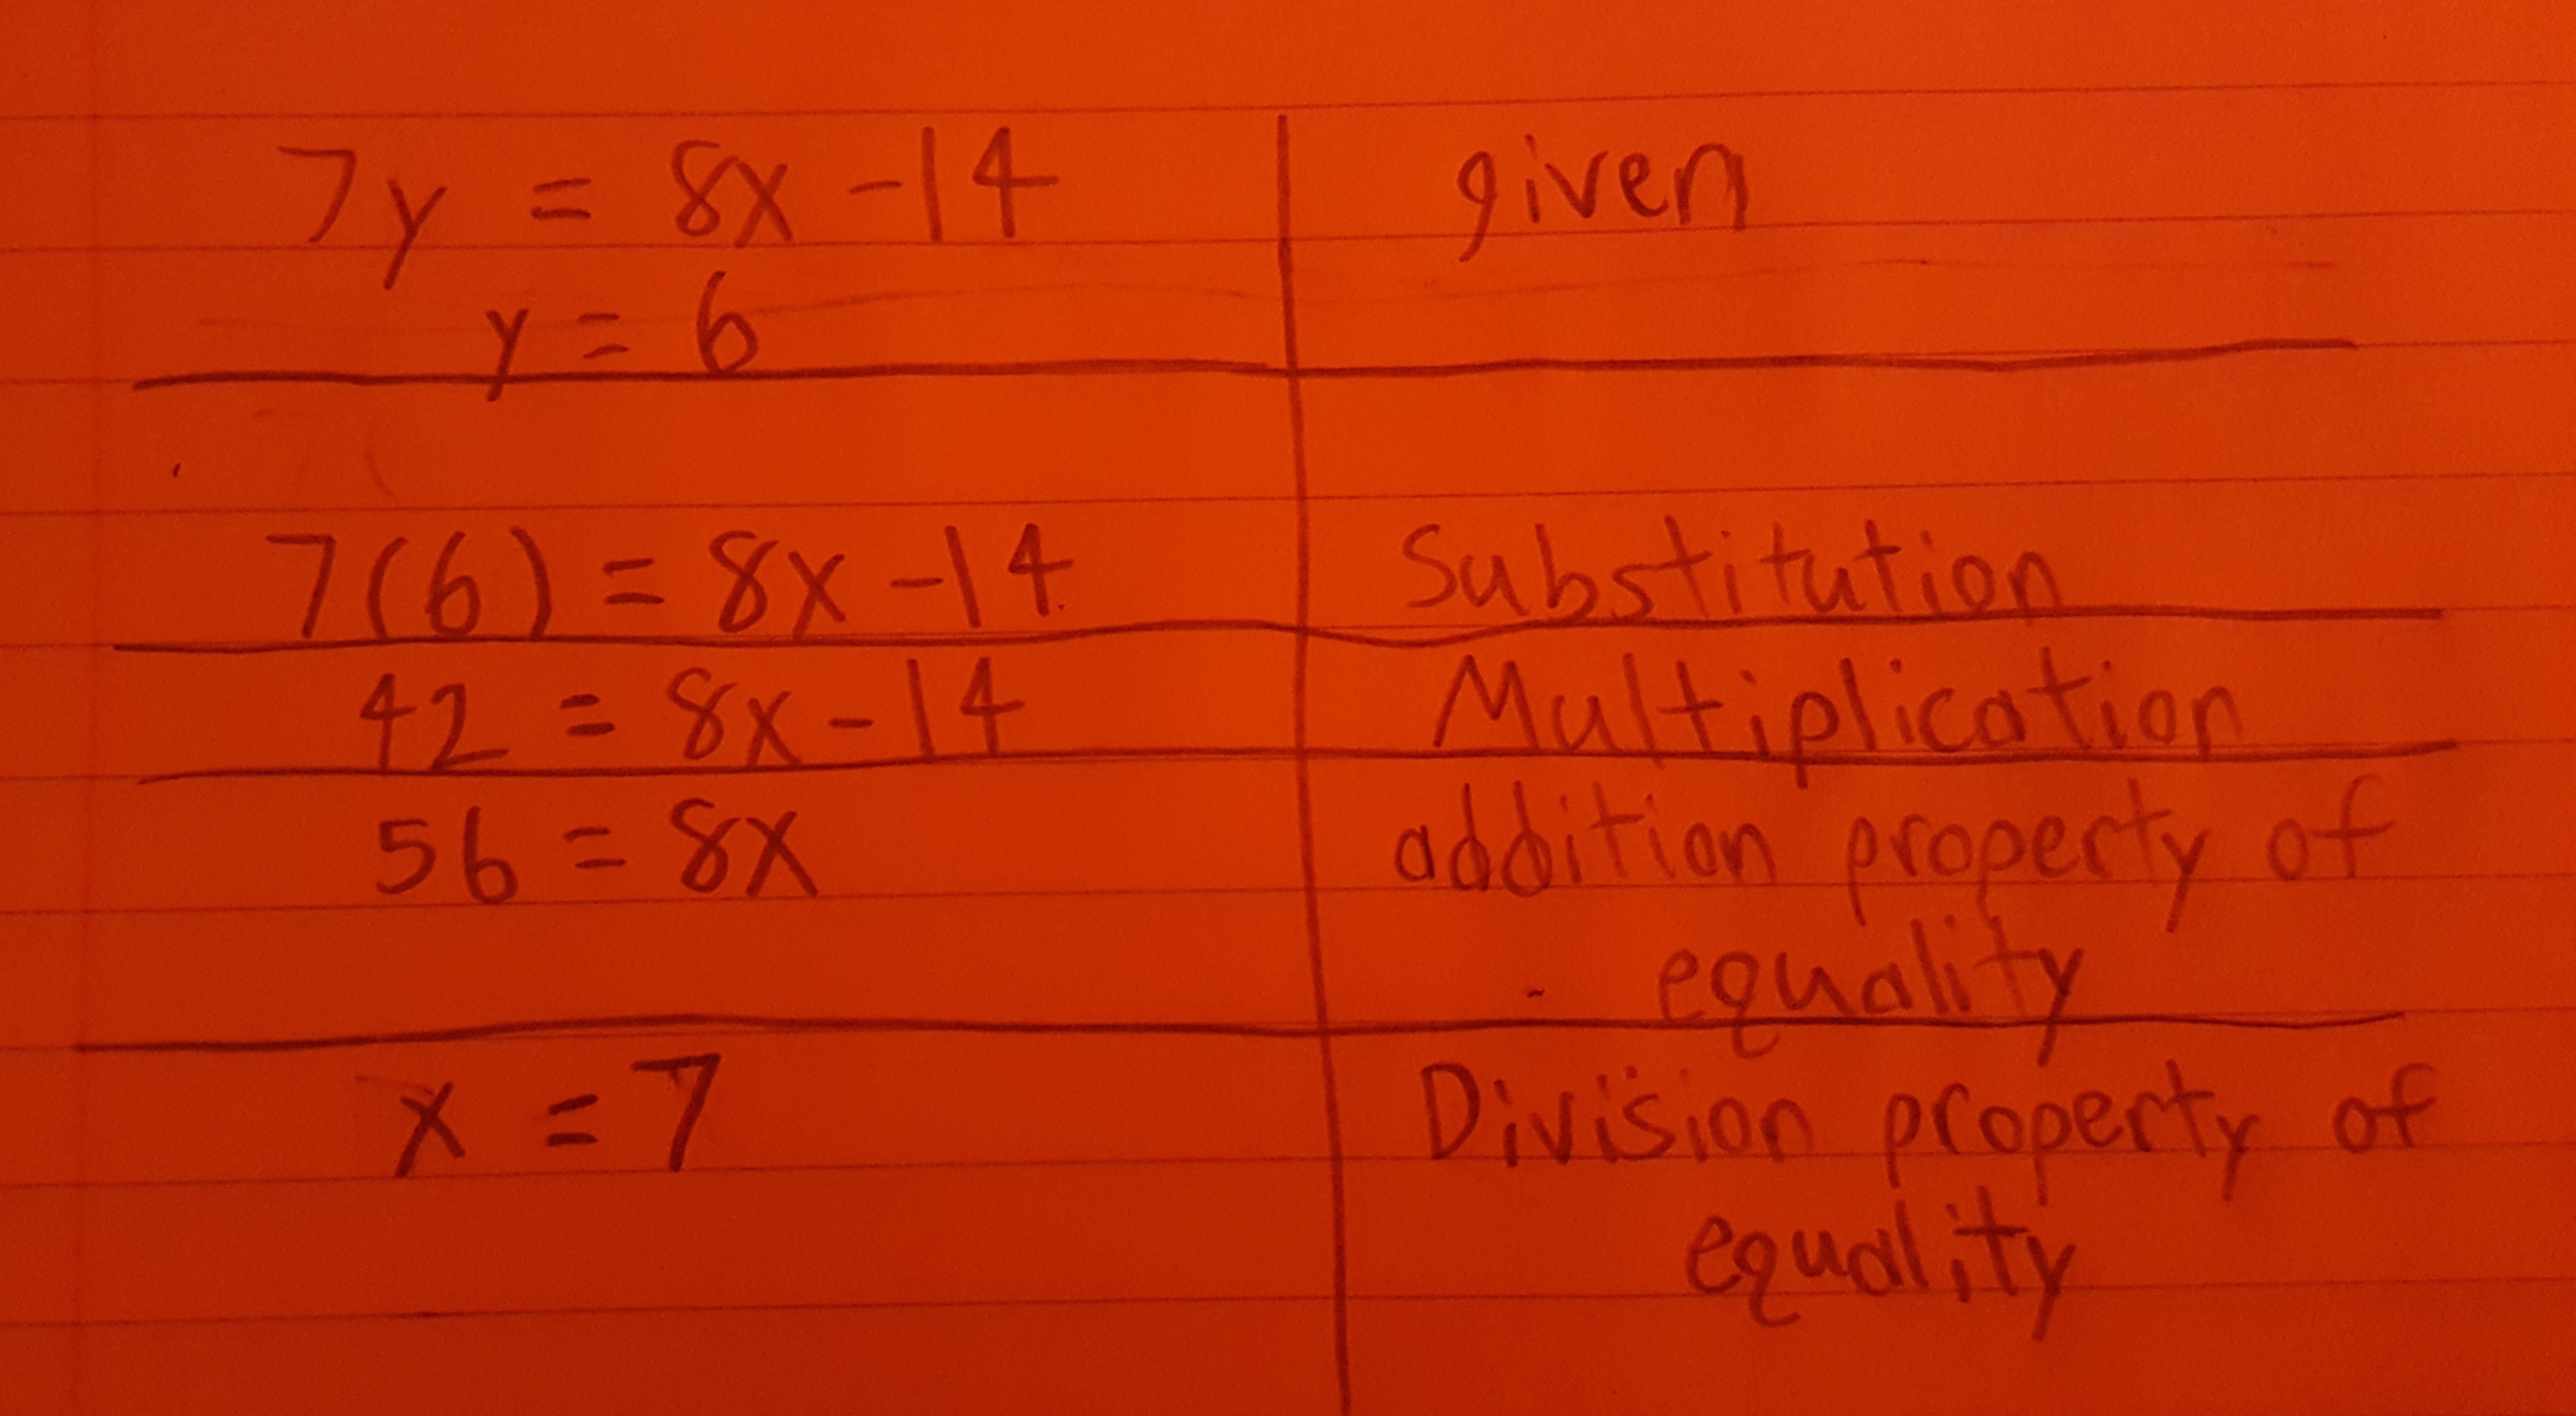 7y = 8x -14 given
y = 6
7(6) = 8x -14 Substitution
42 = 8x -14 Multiplication
56 = 8x addition property of
equality
x = 7 Division property of
equality